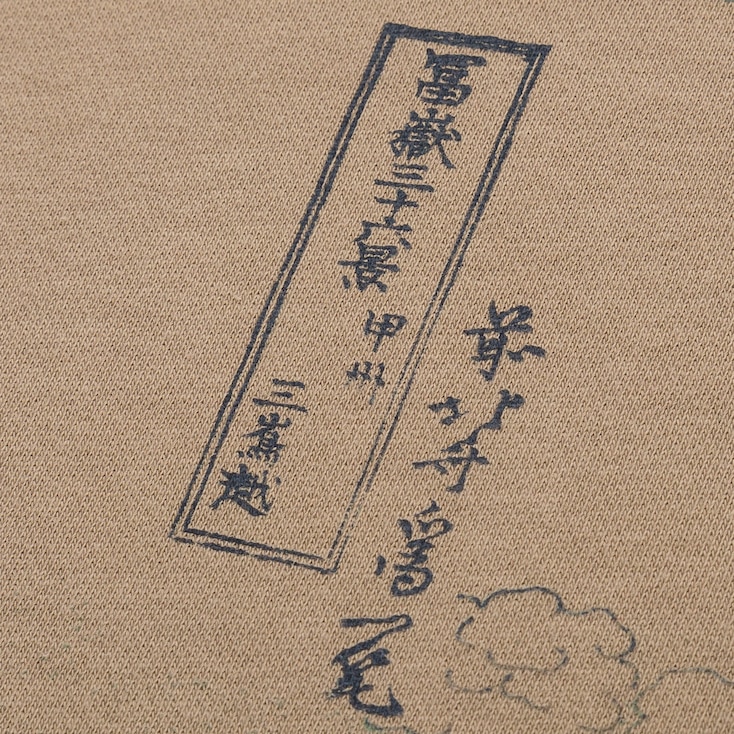 冨嶽三十六景 甲州
三嶌越
前北斎爲一筆